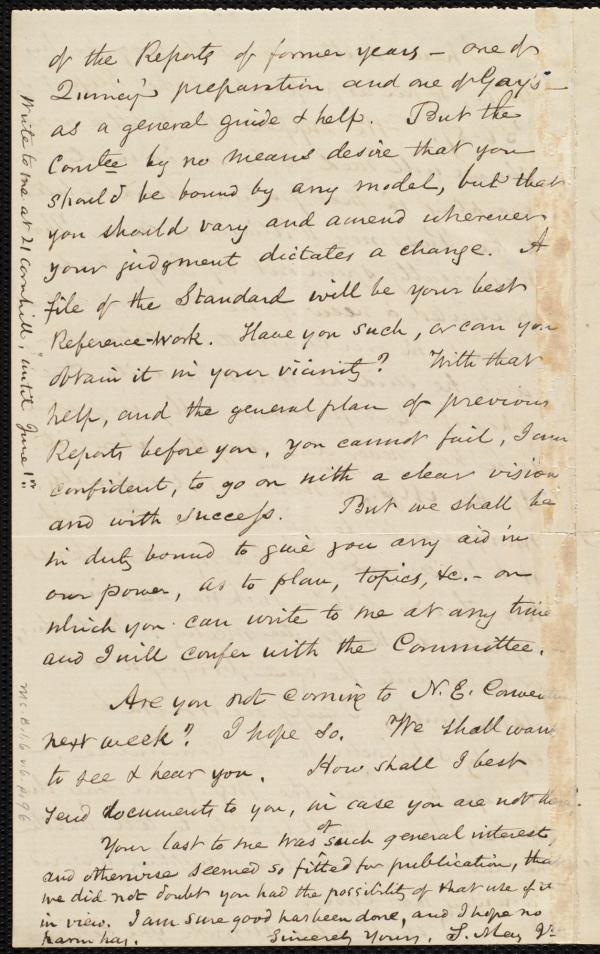 of the Reports of former years – one of
Quincy's preparation and one of Gay's –
as a general guide & help. But the
Comtee by no means desire that you
should be bound by any model, but that
you should vary and amend wherever
your judgment dictates a change. A
file of the Standard will be your best
Reference-work. Have you such, or can you
obtain it in your vicinity? With that
help, and the general plan of previous
Reports before you, you cannot fail, I am
confident, to go on with a clear vision
and with success. But we shall be
in duty bound to give you any aid in
our power, as to plan, topics, &c. – on
which you can write to me at any time
and I will confer with the Committee.
Are you not coming to N. E. Conven
next week? I hope so. We shall wan
to see & hear you. How shall I best
send documents to you, in case you are not
Your last to me was of such general interest,
and otherwise seemed so fitted for publication, tha
we did not doubt you had the possibility of that use of it
in view. I am sure good has been done, and I hope no
harm has. Sincerely Yours, S. May Jr.
Write to me at 21 Cornhill, until June 1st.
Ms. B. 1.6 v6 p 96